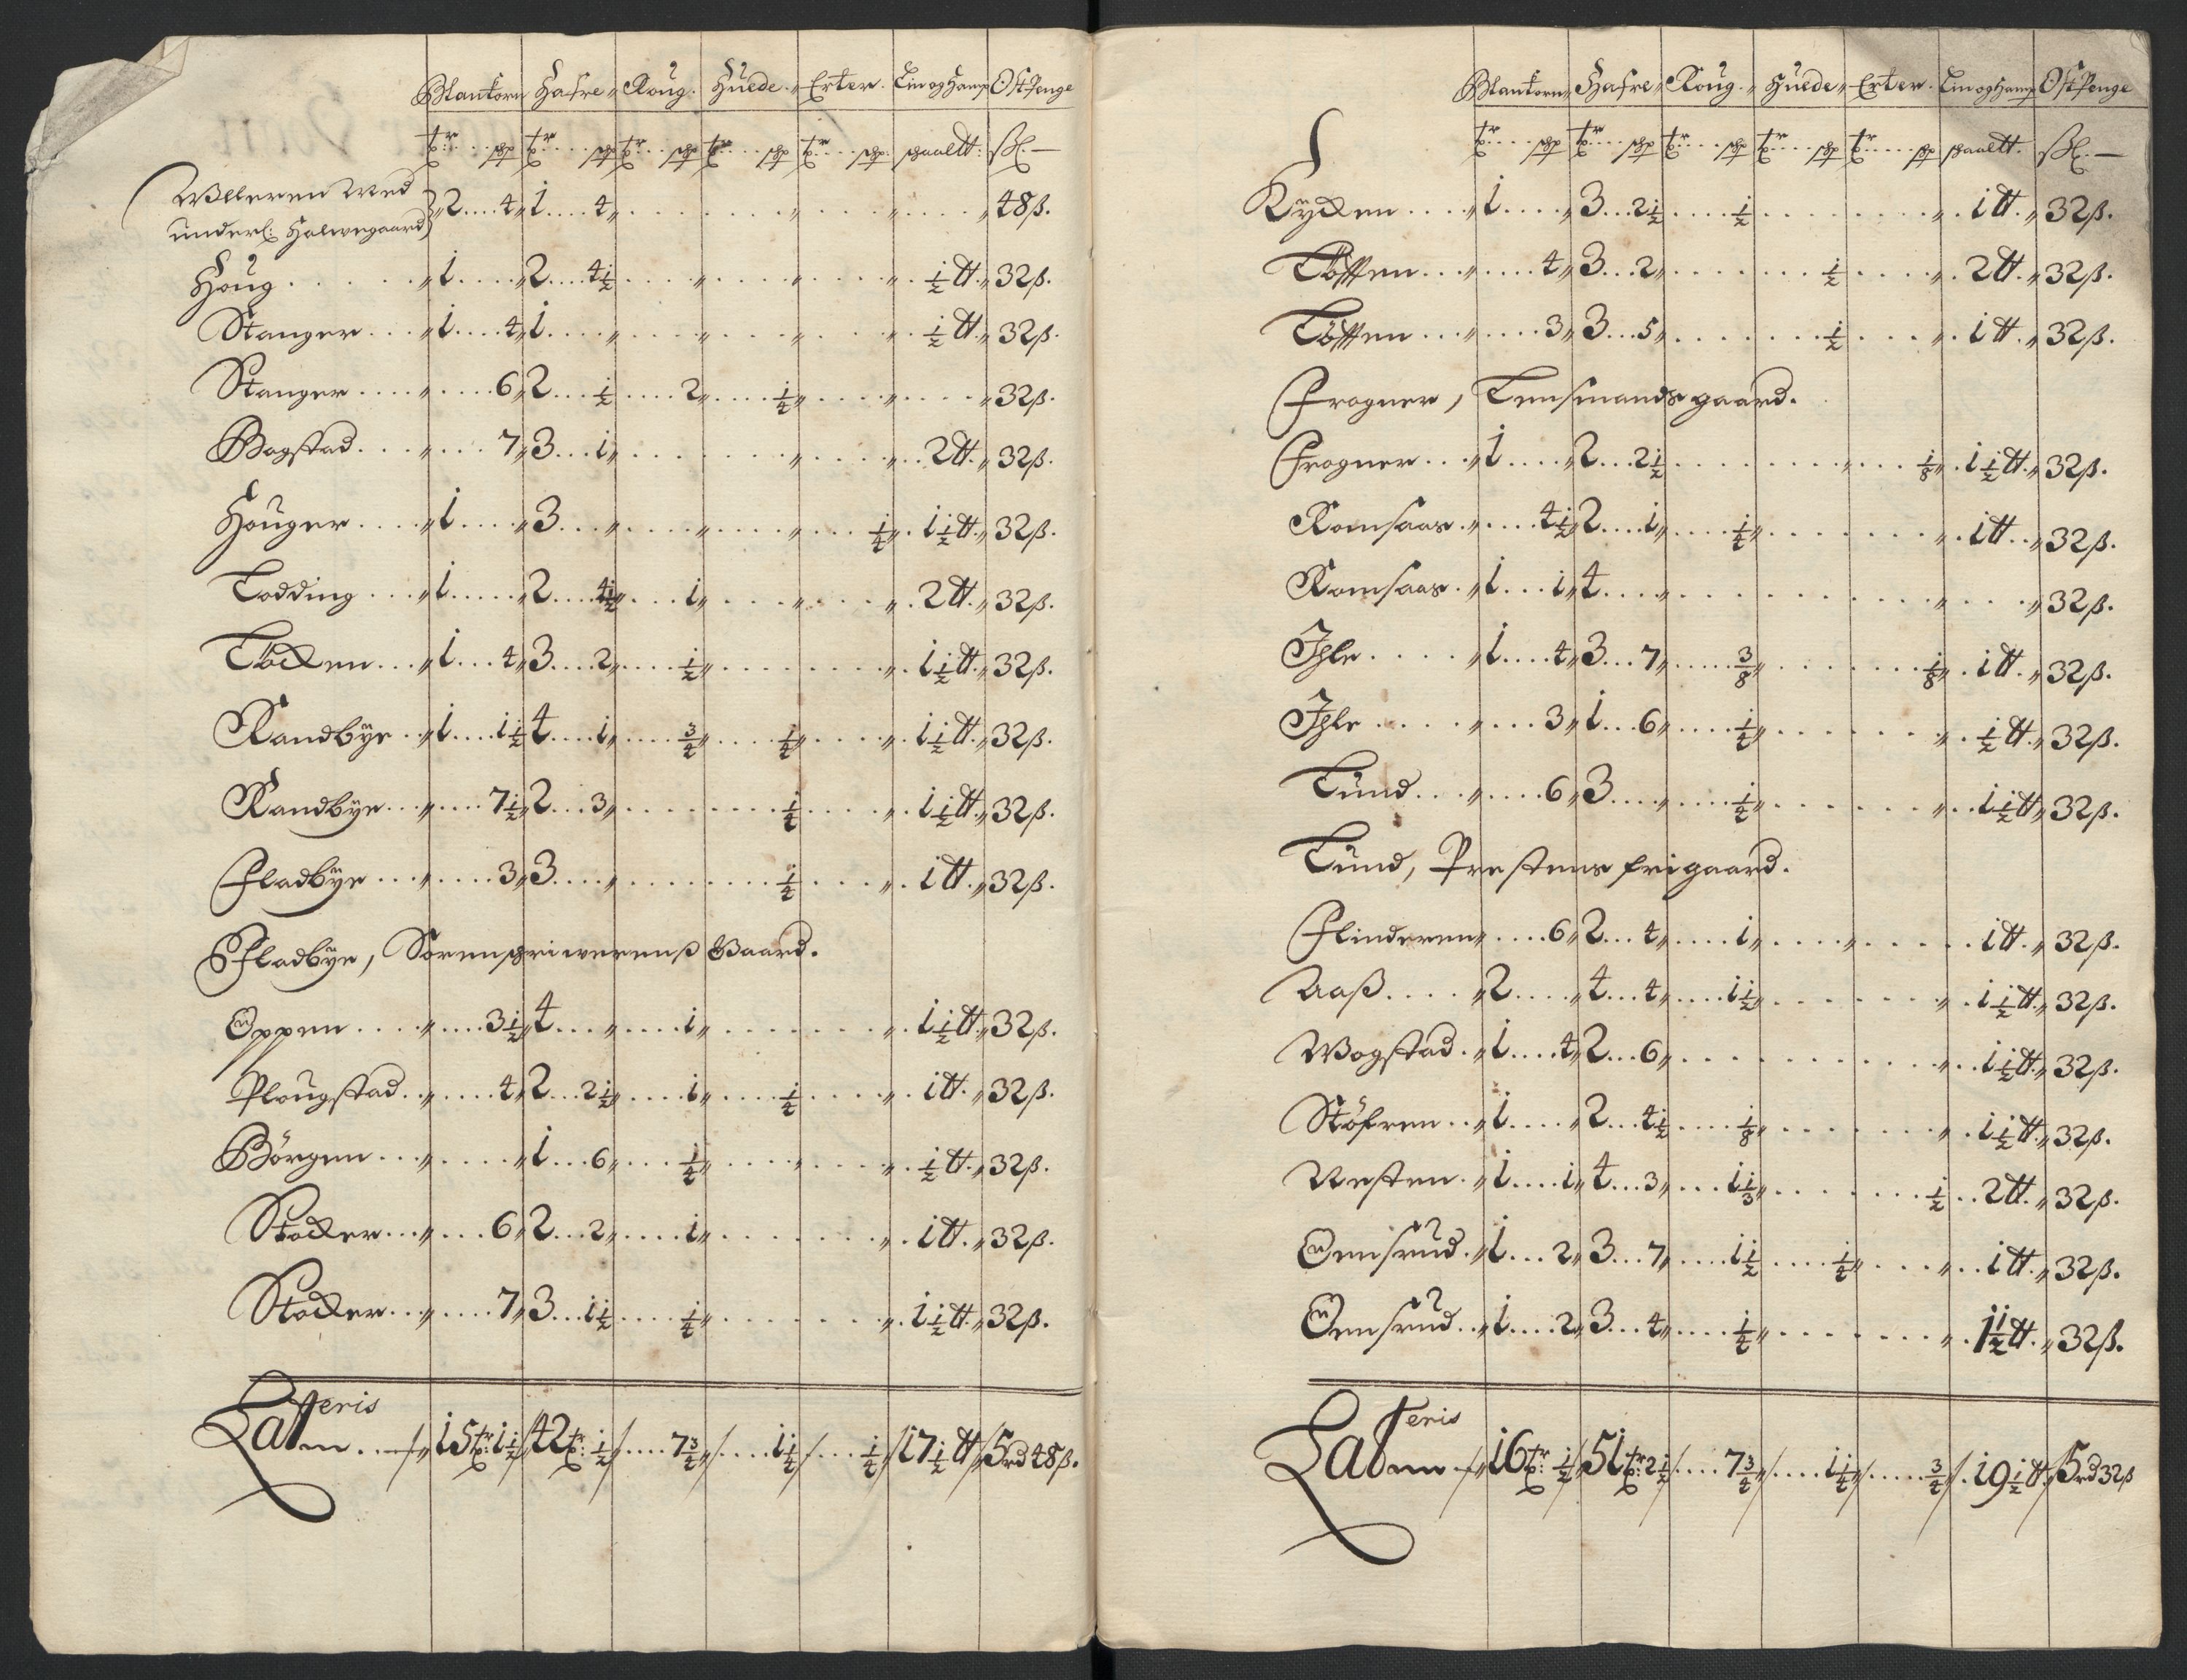 Blantkorn Hafre Roug. Huede. Erter. Lin og Hamp Ost Penge
tr: . . . shp tr: . . . shp tr: . . . shp tr: . . . shp tr: . . . shp: skaaltt: ßl. —
Ulleren Med
underl: Halwegaard 2 . . . . 4 1 . . . . 4 . . . . 48ß.
Houg . . . . 1 . . . . 2 . . . . 4½ . . . . ½ tt. 32ß.
Stanger . . . 1 . . . . 4 1 . . . . ½ tt. 32ß.
Stanger . . . . 6 2 . . . ½ . . . . 2 . . . . ¼ . . . . 32ß.
Bogstad . . . . 7 3 . . . 1 . . . . 2 tt. 32ß.
Houger . . . . 1 . . . . 3 . . . . ¼ . 1½ tt. 32ß.
Lodding . . . 1 . . . . 2 . . . . 4½ . . . 1 . . . . 2 tt. 32ß.
Löcken . . . 1 . . . 4 3 . . . . 2 . . . . ½ . . . . 1½ tt. 32ß.
Randbÿe . . 1 . . . . 1½ 4 . . . . 1 . . . . ¾ . . . . ¼ . . . . 1½ tt. 32ß.
Randbÿe . . . . 7½ 2 . . . 3 . . . . ¼ . . . . 1½ tt. 32ß.
Fladbÿe . . . . 3 3 . . . . ¼ . . . . 1 tt. 32ß.
Fladbÿe, Sorenskriwerenß Gaard.
Oppen . . . . 3½ 4 . . . . 1 . . . . 1½ tt. 32ß.
Plougstad . . . . 4 2 . . . 2½ . . . . 1 . . . . ¼ . . . . 1 tt. 32ß.
Börgen . . . . 1 . . . 6 . . . . ¼ . . . . ½ tt. 32ß.
Stocker . . . . 6 2 . . . 2 . . . . 1 . . . . 1 tt. 32ß.
Stocker . . . . 7 3 . . . 1½ . . . . ¼ . . . . 1½ tt. 32ß.
Lateris
m . . 15 tr: 1½ 42 tr: ½ . . . . 7¾ . . . . 1¼ . . . ¼ 17½ tt 5 rd 48ß.
Blantkorn Hafre Roug. Huede Erter. Lin og Hamp Ost Penge
tr: . . . shp tr: . . . shp tr: . . . shp tr: . . . shp tr: . . . shp skaaltt. ßl. —
Kÿcken . . . . 1 . . . . 3 . . . 2½ . . . . ½ . . . . 1 tt. 32ß.
Töfften . . . . 4 3 . . . 2 . . . . ½ . . . . 2 tt. 32ß.
Töfften . . . . 3 3 . . . 5 . . . . ½ . . . . 1 tt. 32ß.
Frogner, Lensmands gaard.
Frogner . . . 1 . . . . 2 . . . 2½ . . . . ⅛ . 1½ tt. 32ß.
Romsaas . . . . 4½ 2 . . . . 1 . . . . ¼ . . . . 1 tt. 32ß.
Romsaas . 1 . . . 1 4 . . . . 32ß.
Ihle . . . . 1 . . . . 4 3 . . . 7 . . . . ⅜ . . . . ⅛ . 1 tt. 32ß.
Ihle . . . . 3 1 . . . 6 . . . . ¼ . . . . ½ tt. 32ß.
Lund . . . . 6 3 . . . . ¼ . . . . 1½ tt 32ß.
Lund, Prestens frigaard.
Flinderen . . . . 6 2 . . . 4 . . . . 1 . . . . 1 tt. 32ß.
Aaß . . . . 2 . . . . 4 . . . 4 . . . . 1½ . . . . 1½ tt. 32ß.
Wogstad . 1 . . . . 4 2 . . . 6 . . . . 1½ tt. 32ß.
Stöfren . . 1 . . . . 2 . . . 4½ . . . . ⅛ . . . . 1½ tt. 32ß.
Nesten . 1 . . . . 1 4 . . . 3 . . . 1⅓ . . . . ½ . . 2 tt. 32ß.
Oensrud . 1 . . . 2 3 . . . 7 . . . . 1½ . . . . ¼ . . . . 1 tt. 32ß.
Oensrud . . 1 . . . . 2 3 . . . 4 . . . . ¼ . . . . 1½ tt. 32ß.
Lateris
m 16 tr: ½ 51 tr: 2½ . . . . 7¾ . . . . 1¼ . . . . ¾ . 19½ tt. 5 rd 32ß